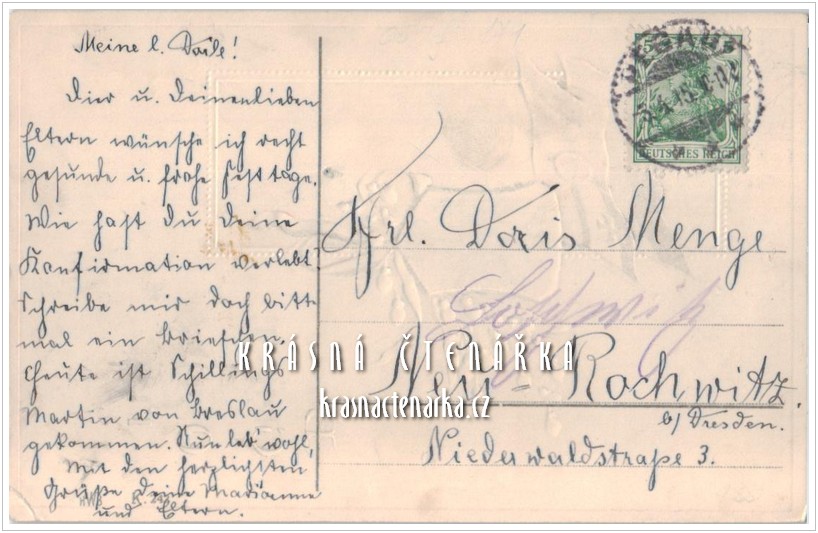 Meine l. Dorle!
Dier u. Deinen lieben
Eltern wünsche ich recht
gesunde u. frohe Festtage.
Wie hast du deine
Konfirmation verlebt?
Schreibe mir doch bitt
mal ein Briefchen.
Heute ist Schillings
Martin von Breslau
gekommen. Nun leb' wohl,
Mit den herzlichsten
Grüße deine Marianne
und Eltern.
DEUTSCHES REICH
Frl. Doris Menge
Loschwitz
Neu-Rochwitz
b/ Dresden.
Niederwaldstraße 3.
KRÁSNÁ ČTENÁŘKA
krasnactenarka.cz